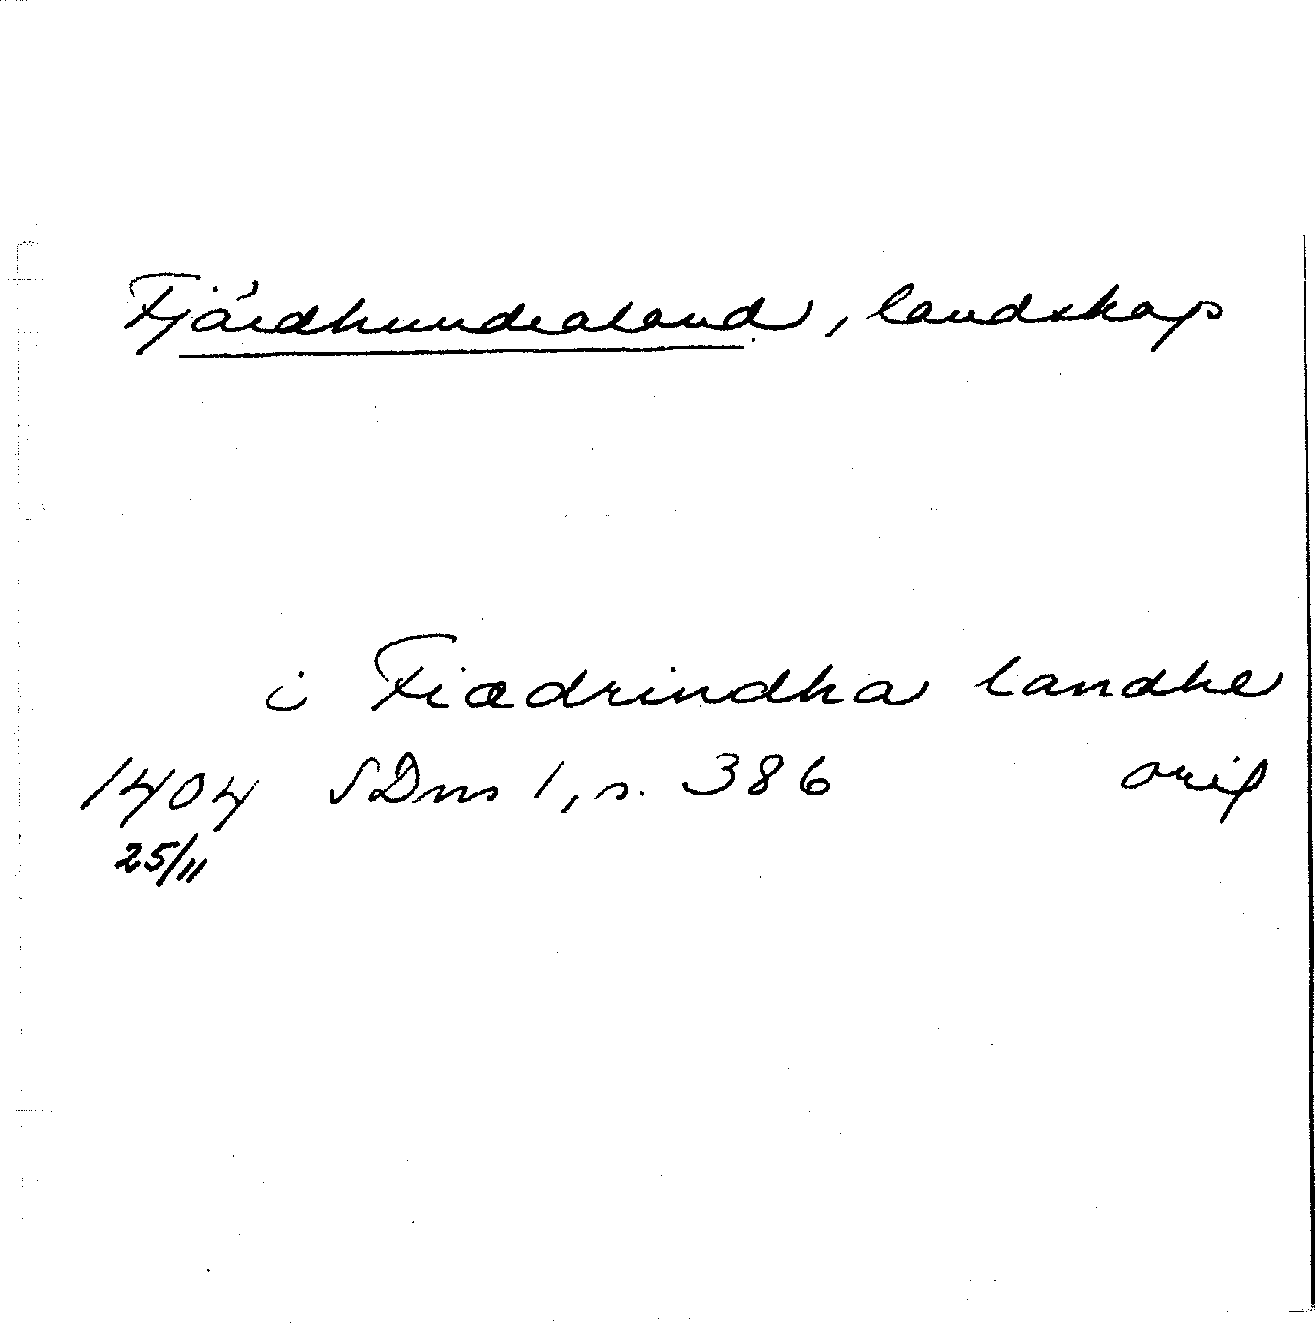 Fjärdhundraland, landskap
i Fiædrindha landhe
1404 SDns 1, s. 386 orig
25/11